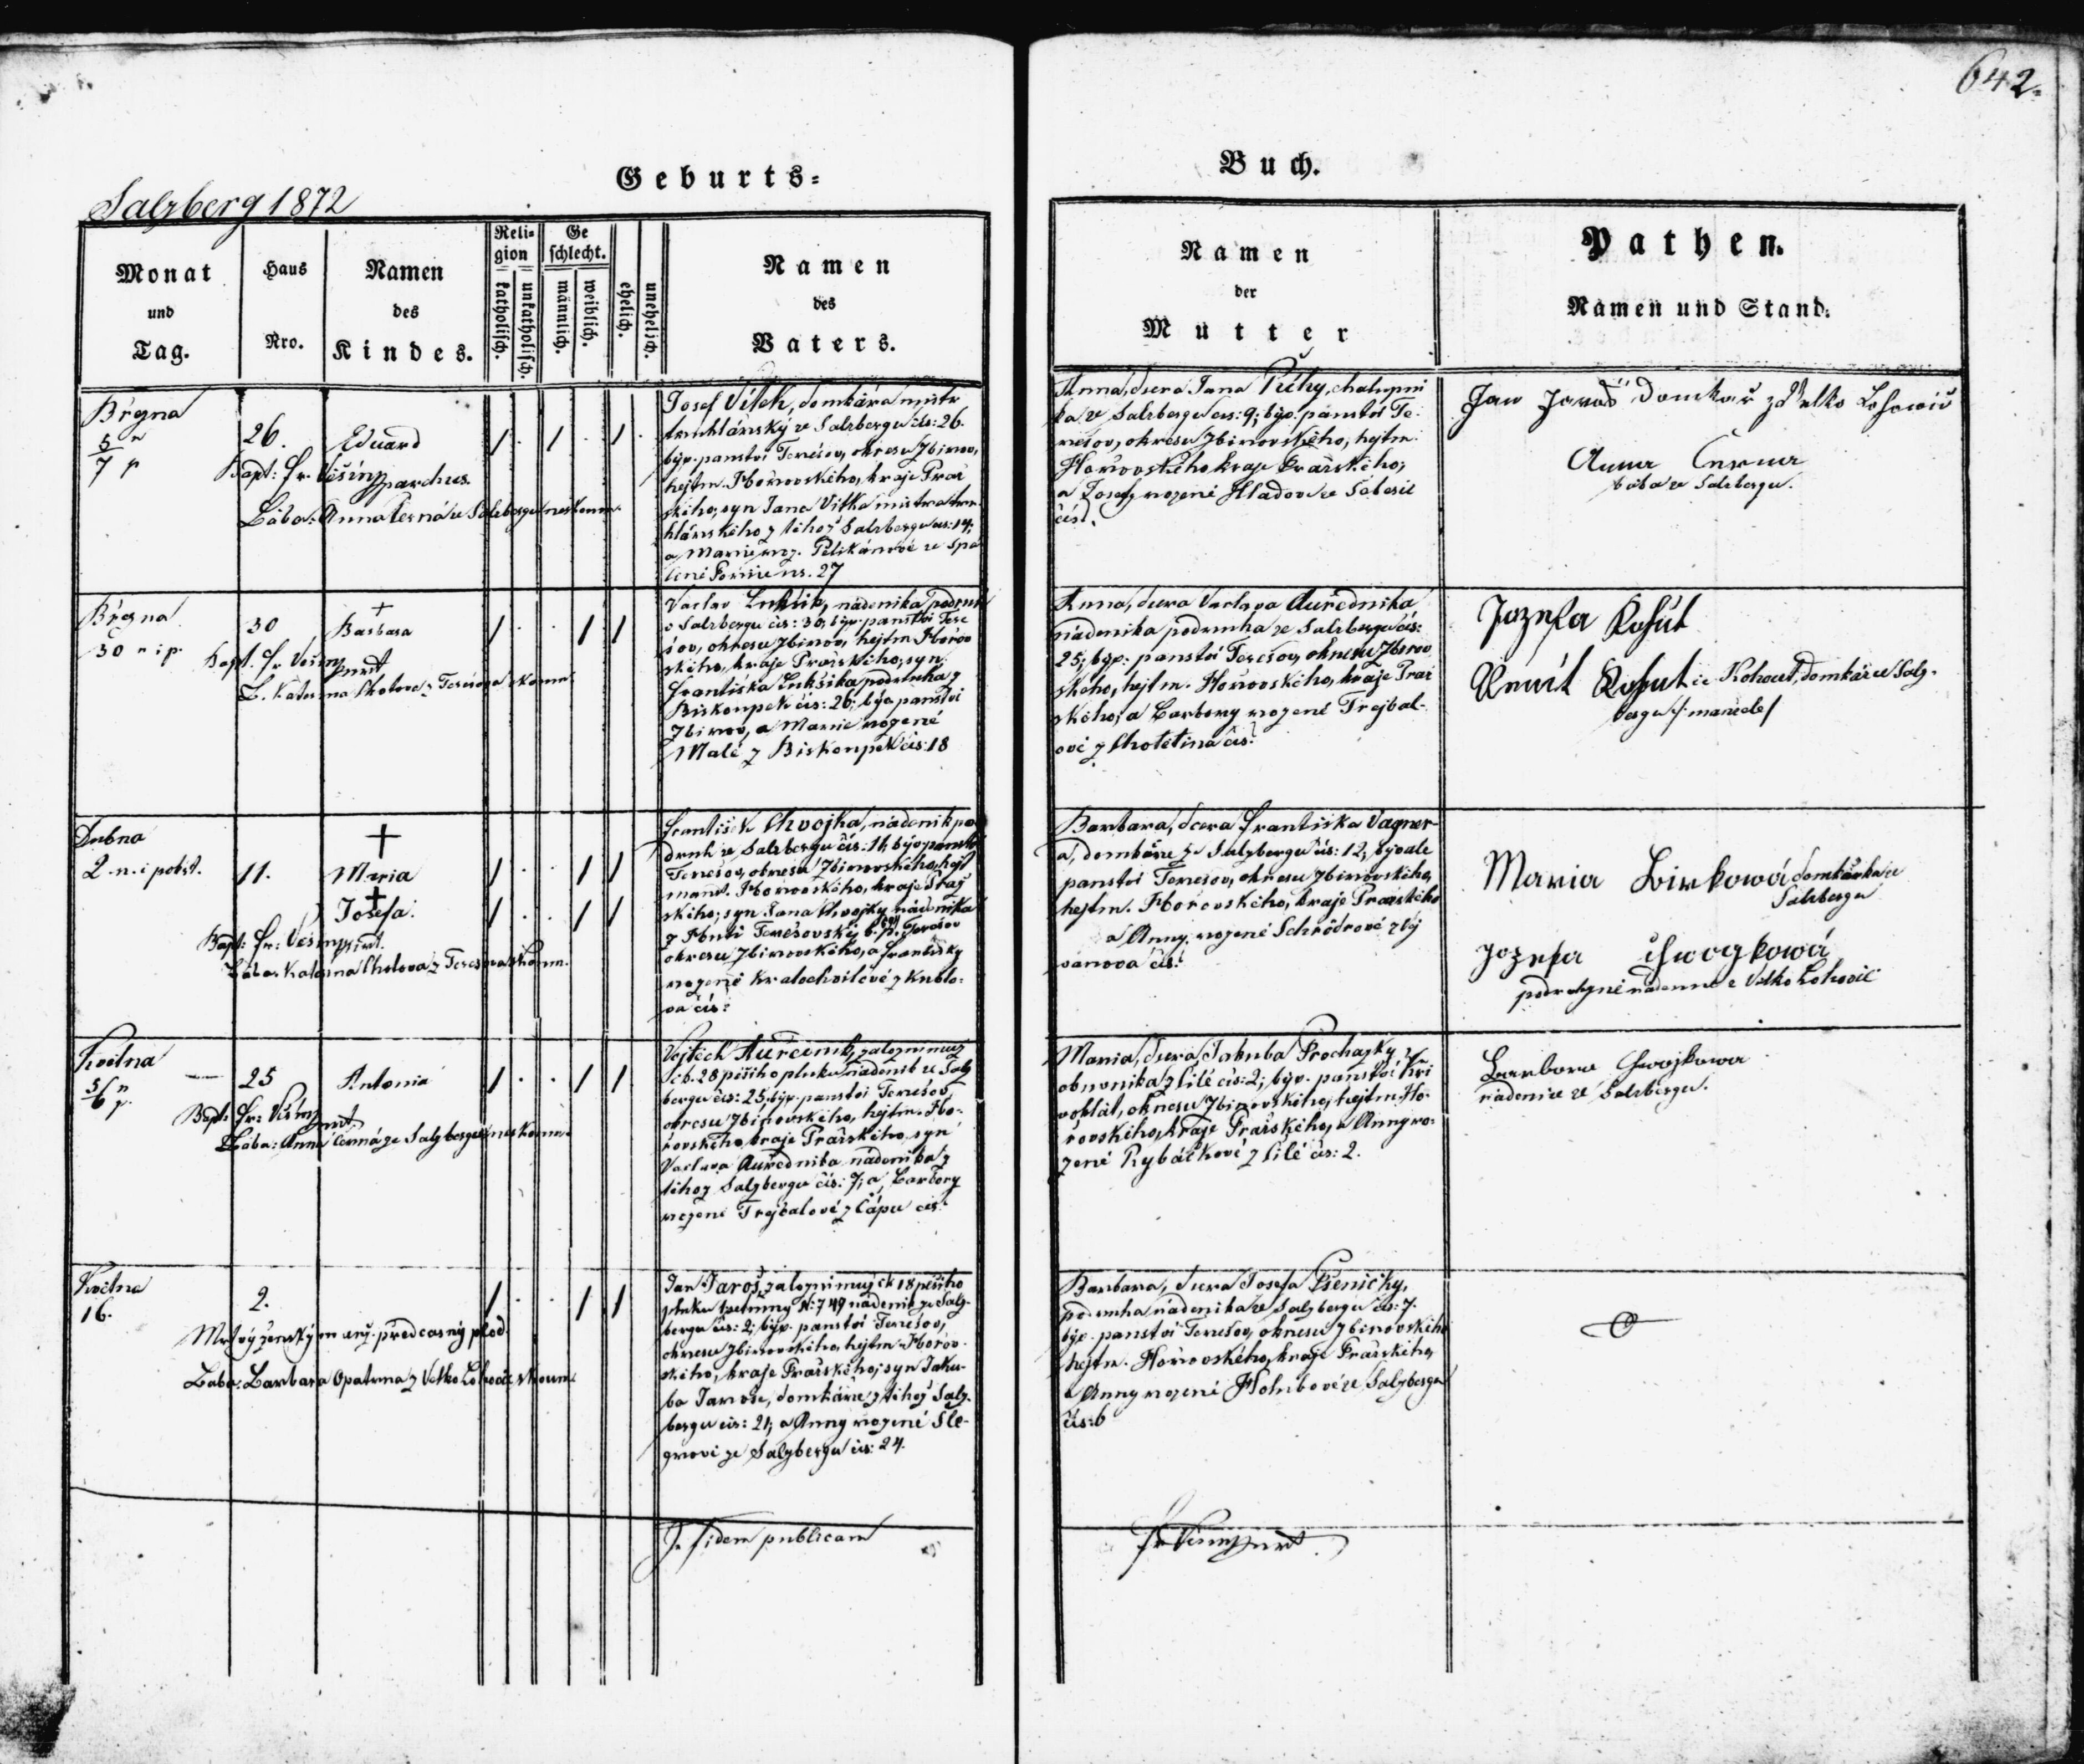 642.
Geburts-
Buch.
Salzberg 1872
Monat
und
Tag.
Haus
Nro.
Namen
des
Kindes.
Reli-
gion
katholisch.
unkatholisch.
Ge
schlecht.
männlich.
weiblich.
ehelich.
unehelich.
Namen
des
Vaters.
Namen
der
Mutter
Pathen.
Namen und Stand.
Března
5 n
7 p
26.
Eduard
Bapt: Fr. Višín parchus.
Bába: Anna Černá ze Salzbergu neskoum.
Josef Vítek, domkář a mistr
truhlářský ze Salzbergu čís: 26.
býv. panství Terešov, okresu Zbirov,
hejtm. Hořovského, kraje Praž
ského, syn Jana Vítka mistra tru
hlářského z téhož Salzbergu čís: 14,
a Marie roz. Pelikánové ze Spá
lené Poříčí nr. 27
Anna, dcera Jana Púhy, chalupní
ka ze Salzbergu čís: 9; býv. panství Te-
rešov, okresu Zbirovského, hejtm.
Hořovského kraje Pražského;
a Josefy rozené Hladove ze Sebesic
čís.
Jan Jaroš Domkař z Velko Lohowic
Anna Černa
bába ze Salzbergu.
Března
30 n i p.
30
Barbara
Bapt. Fr. Višín
B. Kateřina Cholova z Terešova zkoum.
Vaclav Lukšik, nádeníka podruh
v Salzbergu čís: 30, býv. panství Tere
šov, okresu Zbirov, hejtm. Hořov
ského, kraje Pražského, syn
Františka Lukšika podruha z
Biskoupek čís: 26; býv. panství
Zbirov, a Marie rozené
Malé z Biskoupek čís: 18
Anna, dcera Vaclava Auředníka
nádeníka podruha ze Salzbergu čís:
25; býv: panství Terešov, okresu Zbirov
ského, hejtm. Hořovského, kraje Praž
ského, a Barbory rozené Trejbal-
ové z Chotětína čís:
Jozefa Kohút
Kohut Kohout, domkář ze Salz-
bergu /: manželé /
Dubna
2. n. i pokřt.
11.
Maria
Josefa.
Bapt: Fr: Višín
Bába: Kateřina Cholova z Terešova zkoum.
František Chvojka, nádeník po
druh ze Salzbergu čís: 11 býv. panství
Terešov, okresu Zbirovského, hejt
mann. Hořovského, kraje Praž
ského; syn Jana Chvojky nádeníka
z Huti Terešovský b. p. Terešov
okresu Zbirovského, a Františky
rozené Kratochvílové z Kublo-
va čís:
Barbara, dcera Františka Vagner-
a, domkáře ze Salzbergu čís: 12, bývalé
panství Terešov, okresu Zbirovského,
hejtm. Hořovského, kraje Pražského
a Anny, rozené Schrödrové z Vej
vanova čís:
Maria Birkowá domkářka ze
Salzbergu
Jozefa Chwogkowá
podruhyně nádenice z Velko Lohovic
Května
5/6 n p.
25
Antonia
Bapt: Fr: Višín
Bába: Anna Černá ze Salzbergu neskoum.
Vojtěch Auředník, záložní muž
čís. 28 pěšího pluku nádeník ze Salz
bergu čís: 25; býv. panství Terešov,
okresu Zbirovského, hejtm. Ho-
řovského kraje Pražského, syn
Vaclava Auředníka nádeníka z
téhoz Salzbergu čís: 7; a Barbory
rozené Trejbalové z Čápu čís:
Maria, dcera Jakuba Prochazky z
obrovníka z Cilé čís: 2; býv. panství Kři
voklát, okresu Zbirovského, hejtm. Ho-
řovského, kraje Pražského, a Anny ro-
zené Rybáčkové z Cilé čís: 2.
Barbora Chvojkowa
nádenice ze Salzbergu.
Května
16.
2.
Mrtvý ženský předčasný plod.
Bába: Barbara Opatrna z Velko Lohovic zkoum.
Jan Jaroš, záložní muž ck 18 pěšího
pluku N: 749 nádeník ze Salz-
bergu čís: 2; býv. panství Terešov,
okresu Zbirovského, hejtm Hořov-
ského, kraje Pražského; syn Jaku-
ba Jaroše, domkáře z téhož Salz-
bergu čís: 21, a Anny rozené Šle-
grovi ze Salzbergu čís: 24.
Barbara, dcera Josefa Pšeničky,
podruha nádeníka ze Salzbergu čís: 7.
býv. panství Terešov, okresu Zbirovského
hejtm. Hořovského, kraje Pražského,
a Anny rozené Holubové ze Salzbergu
čís: 6
In fidem publicam